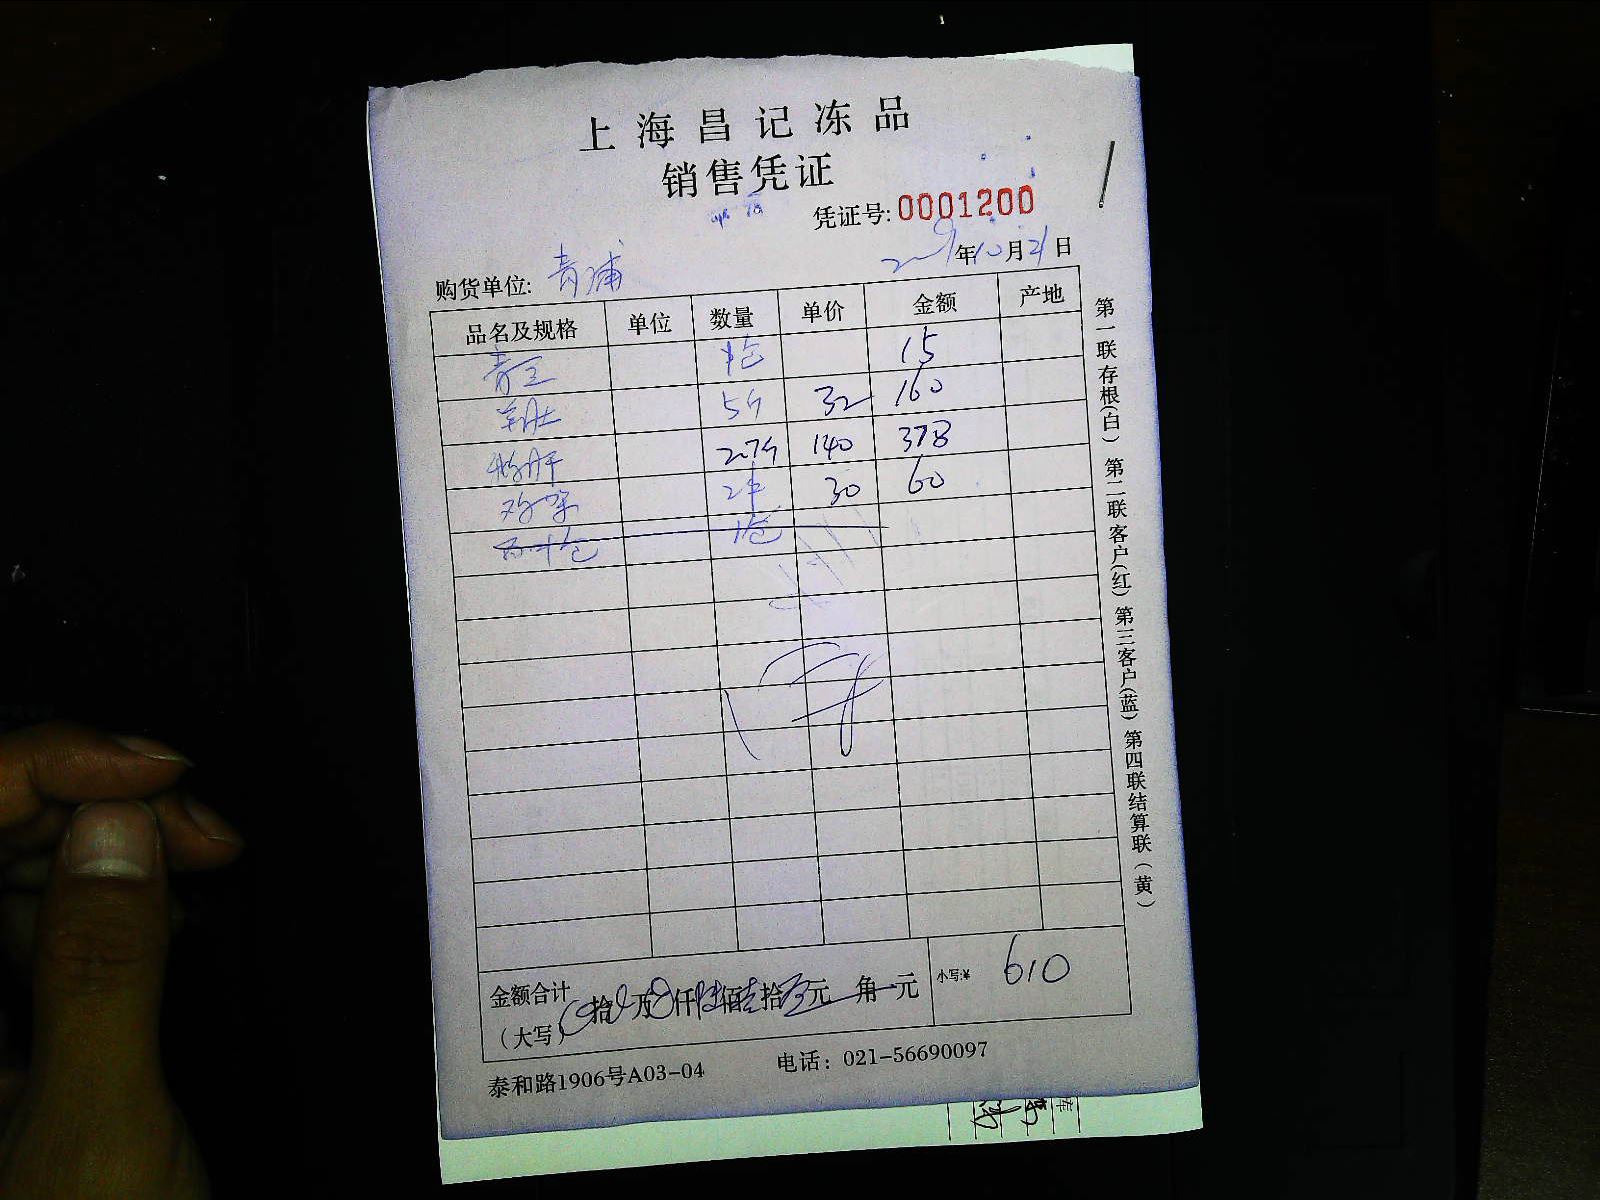 上海昌记冻品
销售凭证
凭证号: 0001200
年10月21日
购货单位: 青浦
品名及规格 单位 数量 单价 金额 产地
青豆 1包 15
羊肚 5斤 32 160
2.7斤 140 378
30 60
1包
金额合计
(大写) 拾 万 仟 陆佰 壹拾 元 角 元 小写:¥ 610
泰和路1906号A03-04 电话: 021-56690097
第一联存根(白) 第二联客户(红) 第三客户(蓝) 第四联结算联(黄)